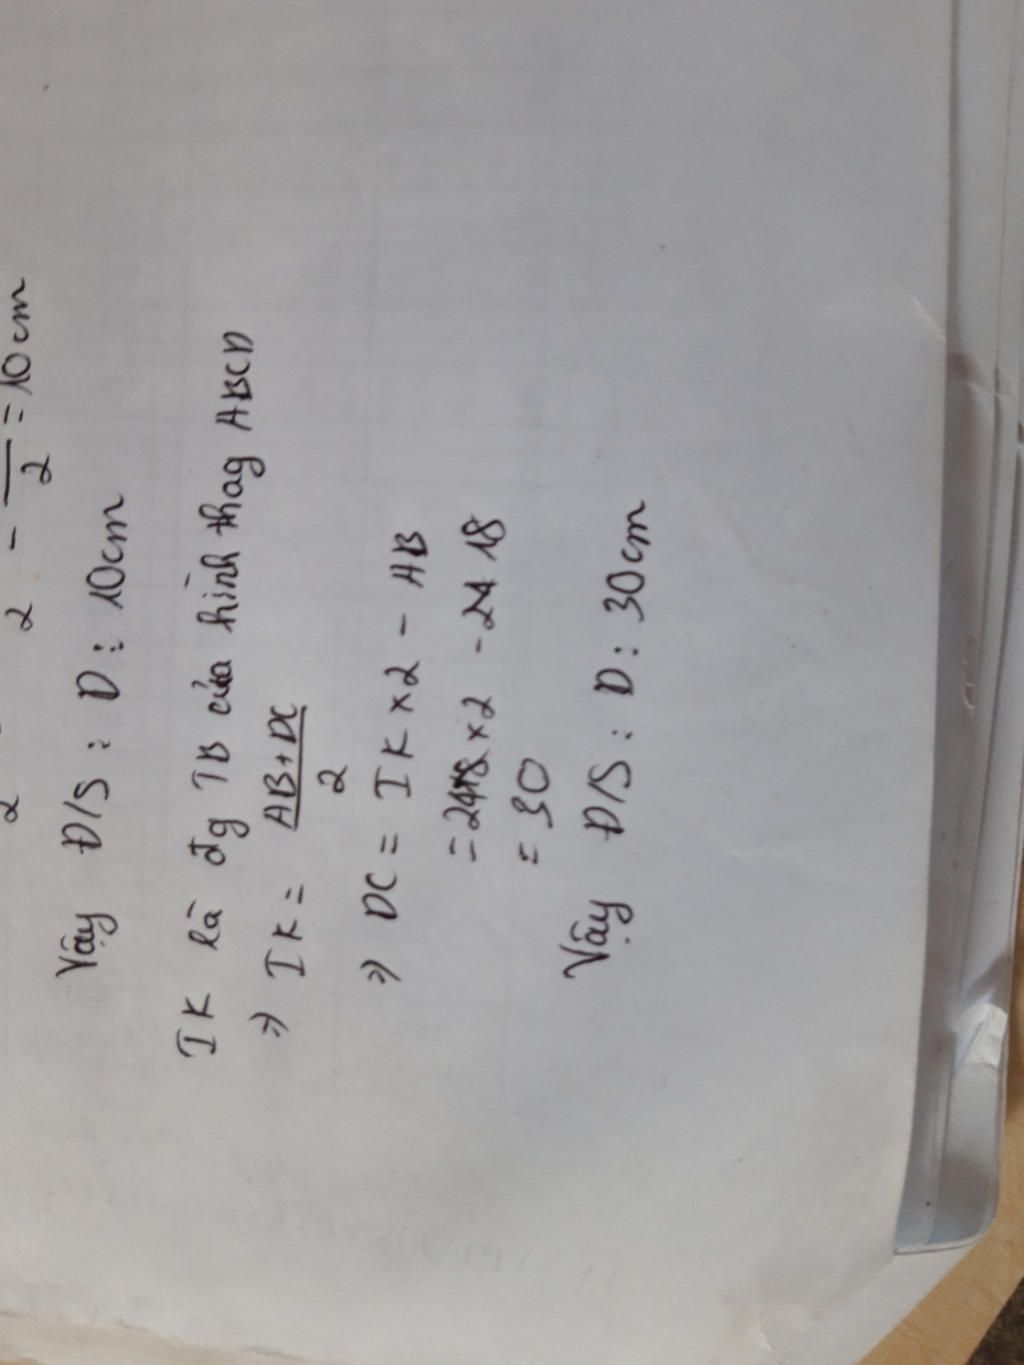 2 - 2 = 10cm
2
Vậy Đ/S : D : 10cm
IK là đg TB của hình thag ABCD
=> IK = AB + DC
2
=> DC = IK x 2 - AB
= 24 x 2 - 18
= 30
Vậy Đ/S : D : 30cm